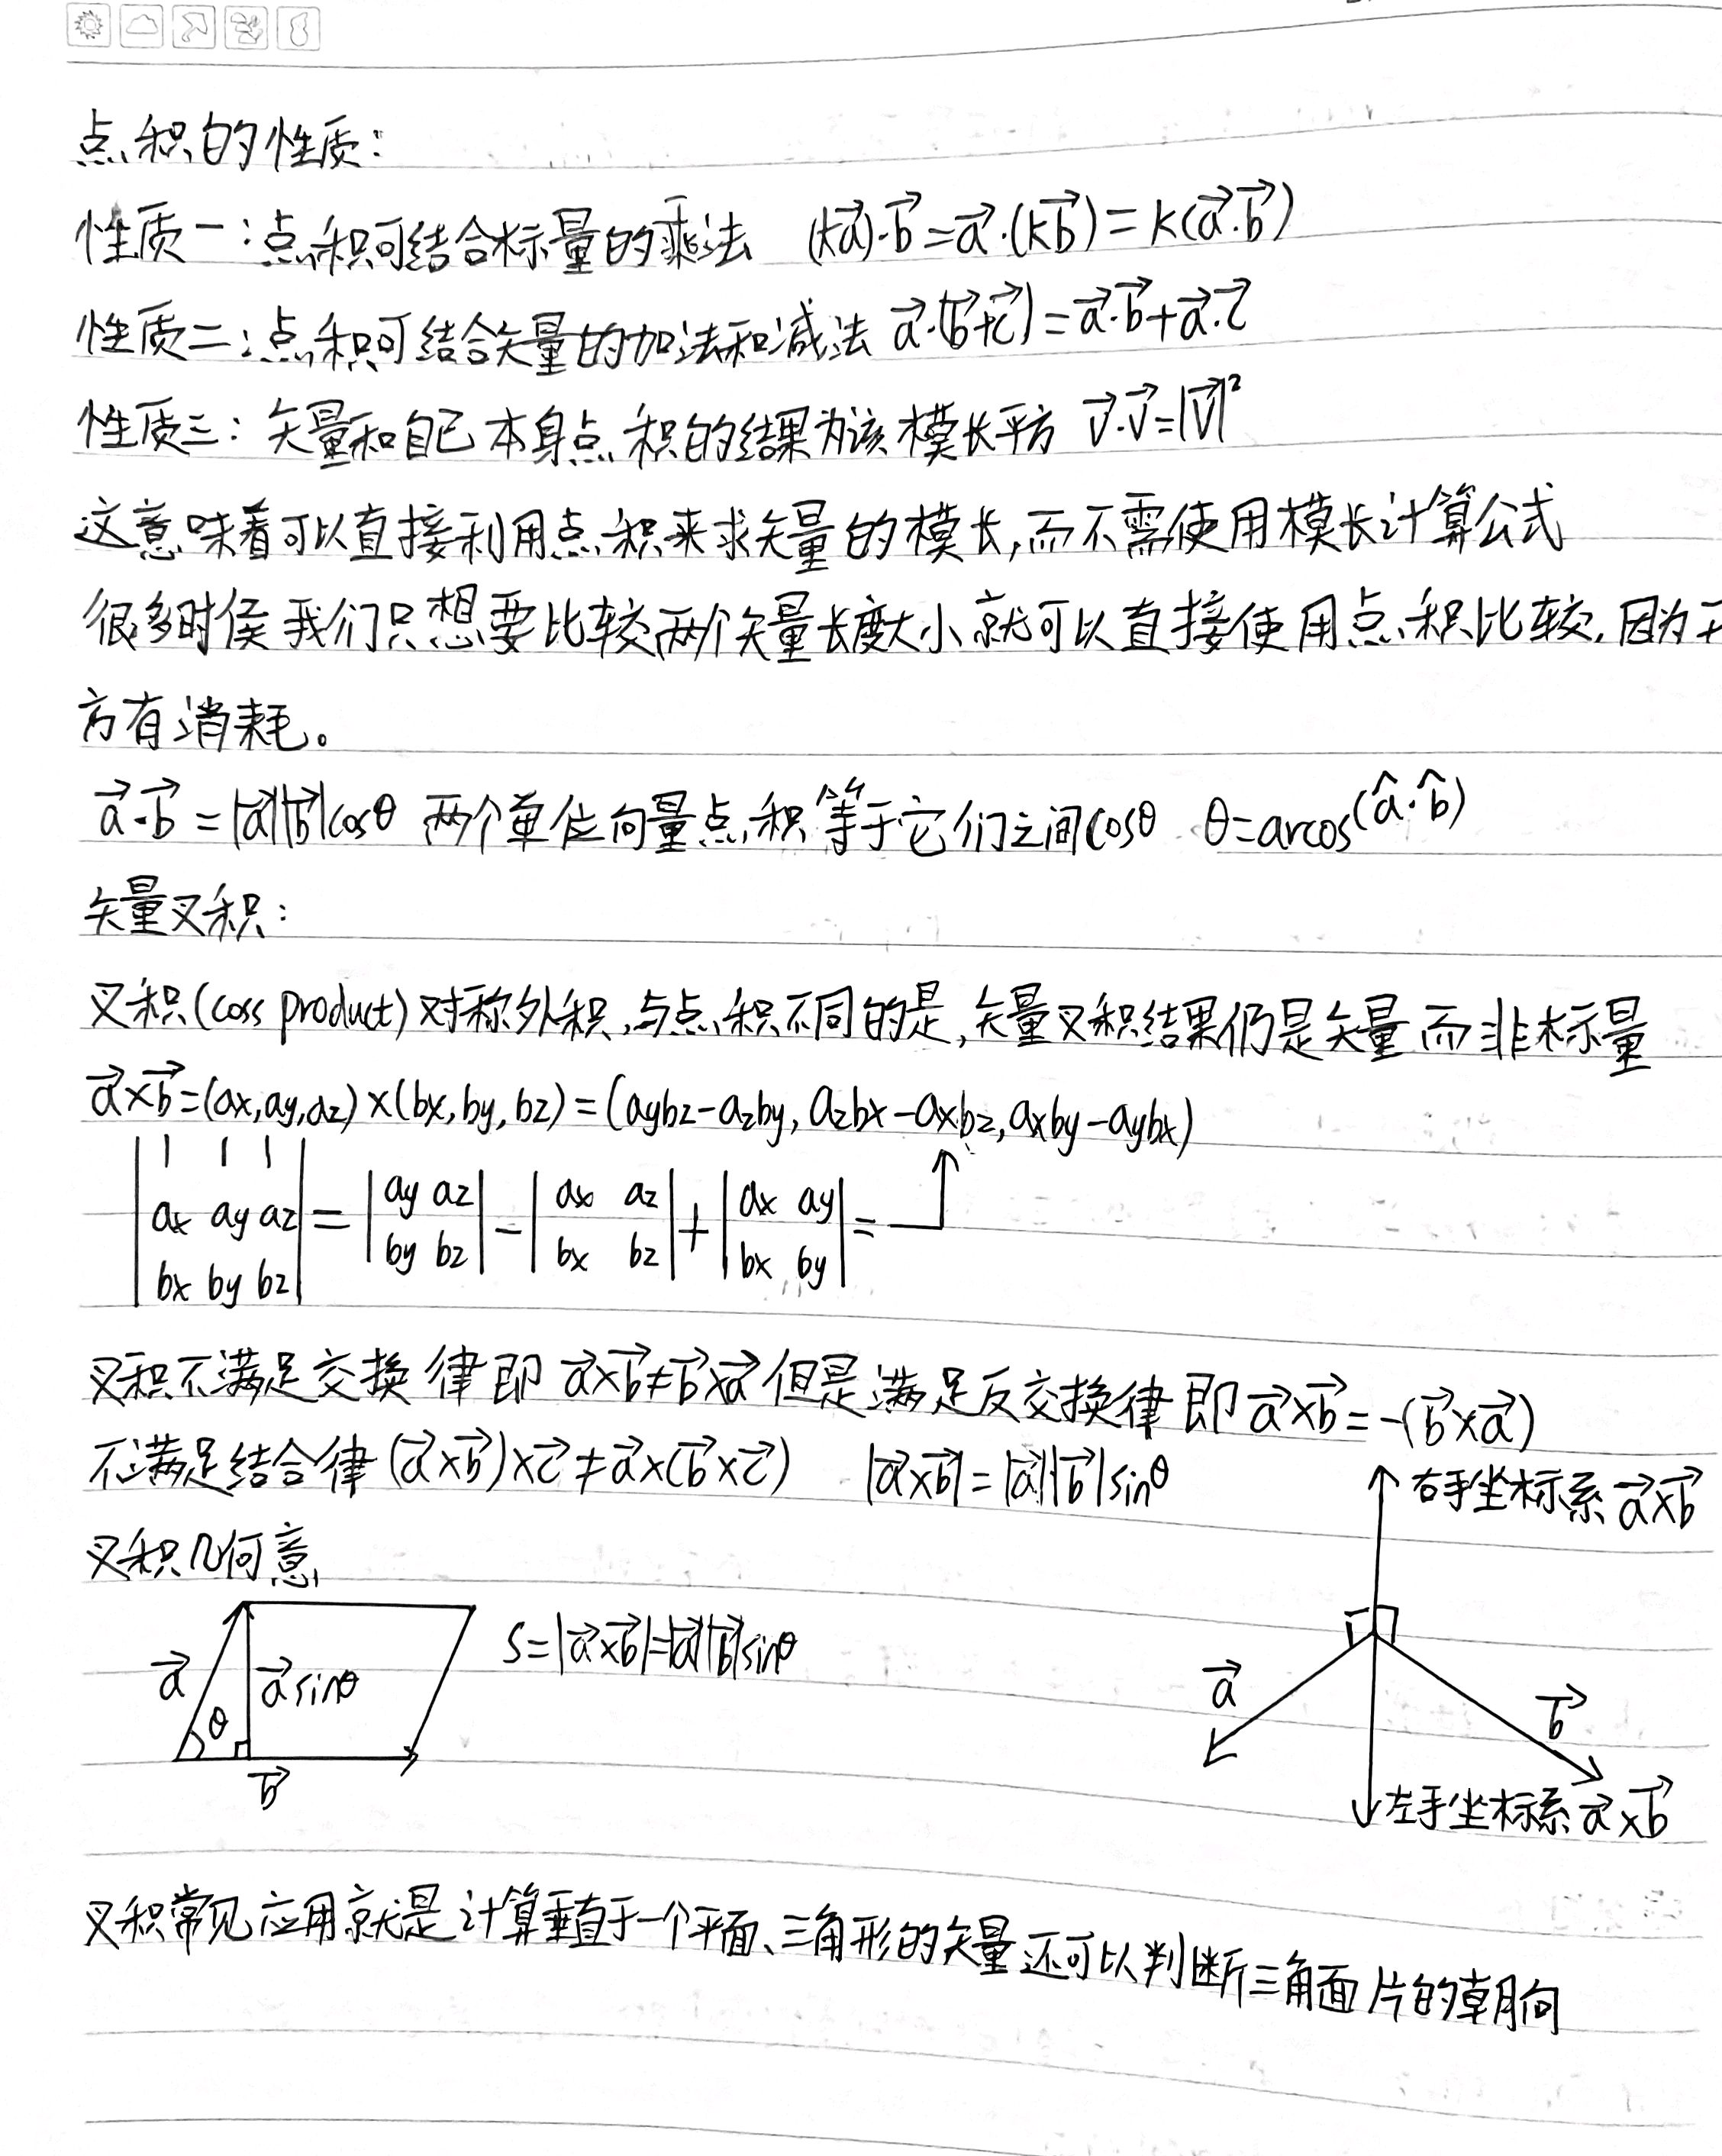 点积的性质:
性质一:点积可结合标量的乘法 (ka⃗)·b⃗=a⃗·(kb⃗)=k(a⃗·b⃗)
性质二:点积可结合矢量的加法和减法 a⃗·(b⃗+c⃗)=a⃗·b⃗+a⃗·c⃗
性质三:矢量和自己本身点积的结果为该模长平方 v⃗·v⃗=|v⃗|²
这意味着可以直接利用点积来求矢量的模长,而不需使用模长计算公式
很多时侯我们只想要比较两个矢量长度大小就可以直接使用点积比较,因为开
方有消耗。
a⃗·b⃗=|a⃗||b⃗|cosθ 两个单位向量点积等于它们之间cosθ θ=arcos(â·b̂)
矢量叉积:
叉积(coss product)对称外积,与点积不同的是,矢量叉积结果仍是矢量而非标量
a⃗×b⃗=(ax,ay,az)×(bx,by,bz)=(aybz-azby,azbx-axbz,axby-aybx)
|1 1 1| |ay az| |ax az| |ax ay|
|ax ay az| = |by bz| - |bx bz| + |bx by| =
|bx by bz|
叉积不满足交换律即 a⃗×b⃗≠b⃗×a⃗ 但是满足反交换律即 a⃗×b⃗=-(b⃗×a⃗)
不满足结合律 (a⃗×b⃗)×c⃗≠a⃗×(b⃗×c⃗) |a⃗×b⃗|=|a⃗||b⃗|sinθ
右手坐标系 a⃗×b⃗
叉积几何意
a⃗ θ a⃗sinθ b⃗
S=|a⃗×b⃗|=|a⃗||b⃗|sinθ
a⃗ b⃗
左手坐标系 a⃗×b⃗
叉积常见应用就是计算垂直于一个平面、三角形的矢量还可以判断三角面片的朝向